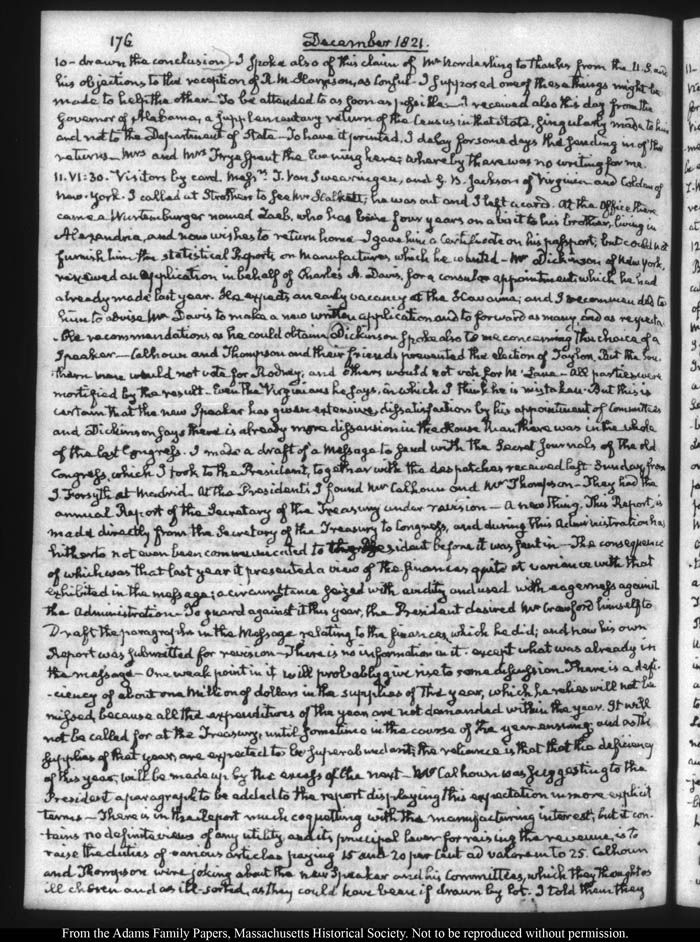 176 December 1821.
10 - drawn the conclusion - I spoke also of this claim of Mr. to thanks from the U.S. and
his objections to the reception of R. M. Harrison, as Consul - I supposed one of these things might be
made to help the other - To be attended to as soon as possible - I received also this day from the
Governor of Alabama, a supplementary return of the Census in that State, singularly made to him
and not to the Department of State - To have it printed, I delay for some days the sending in of the
returns - Mrs and Mrs Frye spent the Evening here; whereby there was no writing for me.
11. VI: 30. Visitors by card. Messrs T. Van Swearingen, and E. B. Jackson of Virginia and Colden of
New-York. I called at Strothers to see Mr. he was out and I left a card. At the Office there
came a Wurtemburger named who has been four years on a visit to his brother, living in
Alexandria, and now wishes to return home - I gave him a Certificate on his passport; but could not
furnish him the statistical Report, on Manufactures which he wanted - Mr Dickinson of New York,
renewed an application in behalf of Charles A. Davis, for a consular appointment which he had
already made last year. He expects an early vacancy at the Havanna; and I recommended to
him to advise Mr Davis to make a new written application and to forward as many and as respecta-
-ble recommendations as he could obtain. Dickinson spoke also to me concerning the choice of a
Speaker - Calhoun and Thompson and their friends prevented the election of Taylor, But the Sou-
thern men would not vote for Rodney, and others would not vote for M'Lane - All parties were
mortified by the result - Even the Virginians he says, in which I think he is mistaken - But this is
certain that the new Speaker has given extensive dissatisfaction by his appointment of Committees
and Dickinson says there is already more dissension in the House than there was in the whole
of the last Congress. I made a draft of a Message to send with the Secret Journals of the old
Congress, which I took to the President, together with the despatches received last Sunday, from
J. Forsyth at Madrid. At the Presidents I found Mr Calhoun and Mr Thompson - They had the
annual Report of the Secretary of the Treasury under revision - A new thing. This Report, is
made directly from the Secretary of the Treasury to Congress, and during this Administration has
hitherto not even been communicated to the President before it was sent in - The consequence
of which was that last year it presented a view of the finances quite at variance with that
exhibited in the message; a circumstance seized with avidity and used with eagerness against
the Administration - To guard against it this year, the President desired Mr Crawford himself to
Draft the paragraph in the Message relating to the finances, which he did; and now his own
Report was submitted for revision - There is no information in it except what was already in
the message - One weak point in it will probably give rise to some discussion. There is a defi-
-ciency of about one Million of dollars in the supplies of the year, which he relies will not be
missed, because all the expenditures of the year are not demanded within the year. It will
not be called for at the Treasury, until sometime in the course of the year ensuing; and as the
supplies of that year, are expected to be superabundant, the reliance is that the deficiency
of this year, will be made up by the excess of the next - Mr Calhoun was suggesting to the
President a paragraph to be added to the report displaying this expectation in more explicit
terms - There is in the Report much coquetting with the manufacturing interest; but it con-
-tains no definite views of any utility and its principal lever for raising the revenue, is to
raise the duties of various articles paying 15 and 20 per Cent ad valorem to 25. Calhoun
and Thompson were joking about the new Speaker and his Committees, which they thought as
ill chosen and as ill-sorted, as they could have been if drawn by lot. I told them they
From the Adams Family Papers, Massachusetts Historical Society. Not to be reproduced without permission.